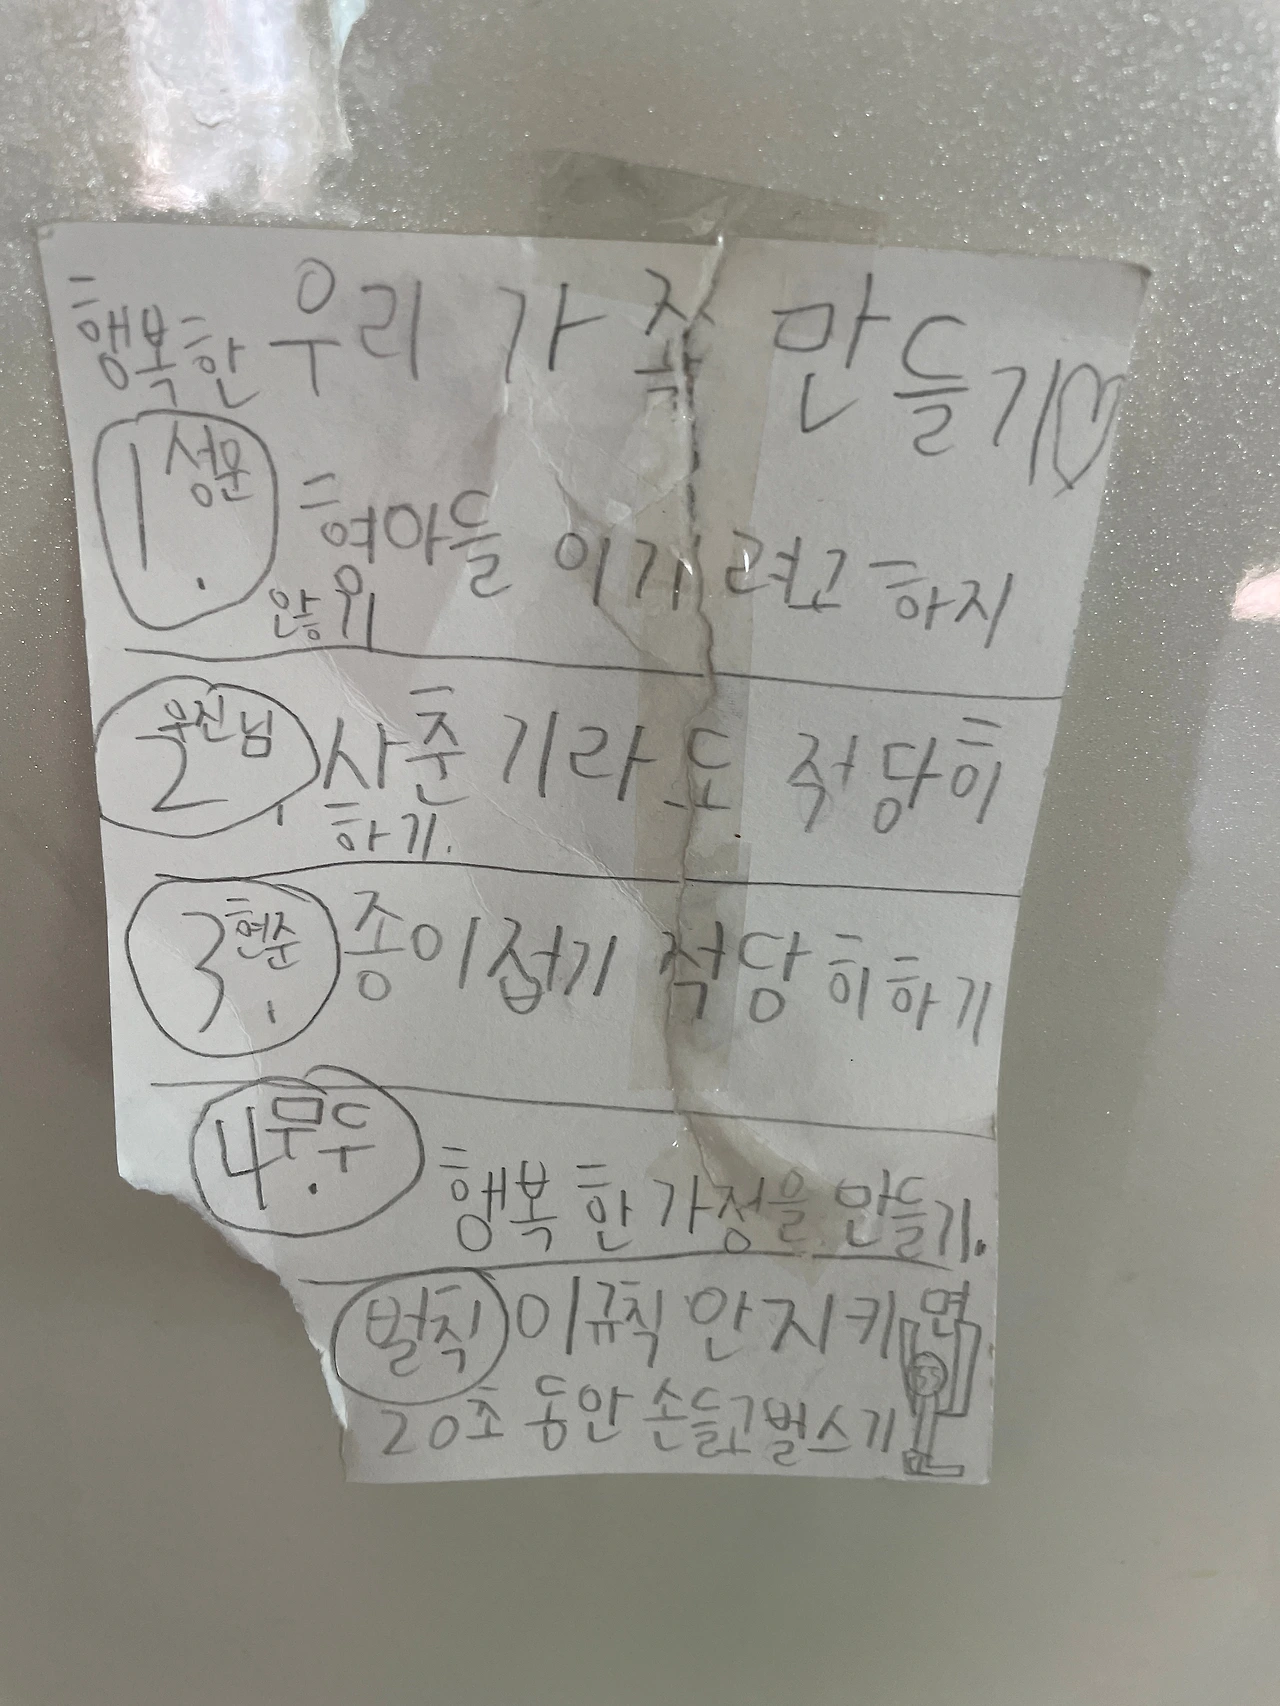 행복한 우리 가족 만들기♡
1. 성문 형아들 이기려고 하지
않위
2. 우진님 사춘기라도 적당히
하기.
3. 현준 종이접기 적당히하기
4. 무두 행복한 가정을 만들기.
벌칙 이규칙 안지키면
20초 동안 손들고 벌스기